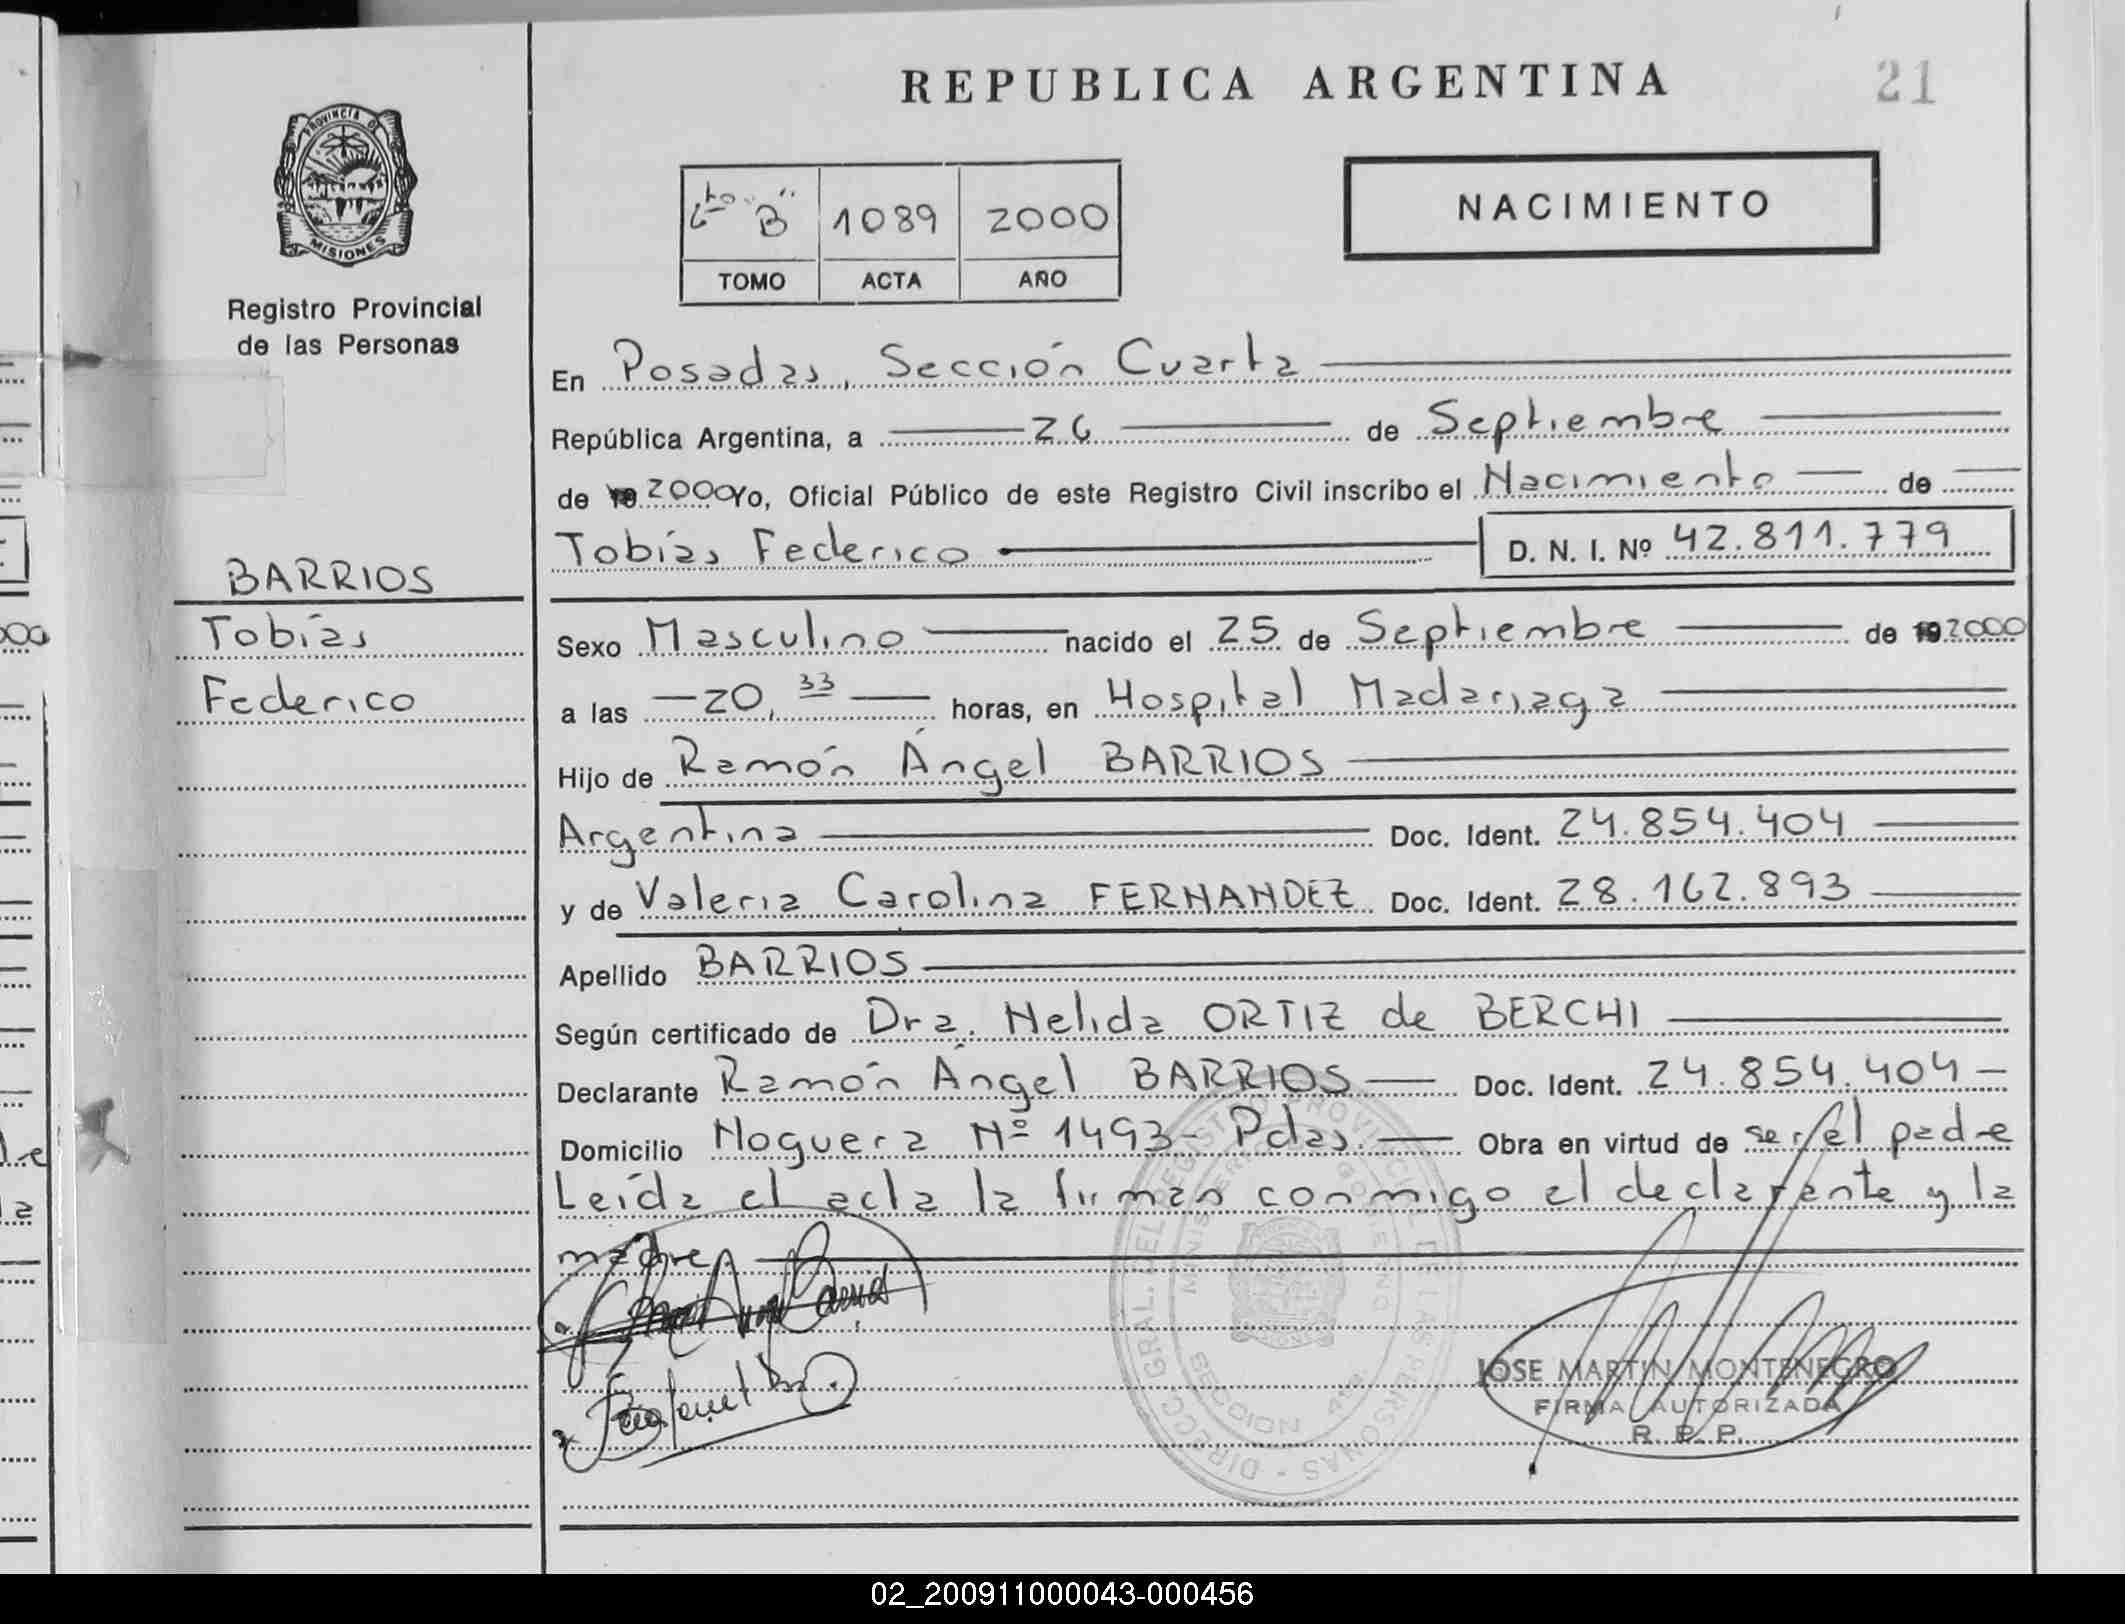 REPUBLICA ARGENTINA
21
PROVINCIA DE
MISIONES
Registro Provincial
de las Personas
4to "B" 1089 2000
TOMO ACTA AÑO
NACIMIENTO
En Posadas, Sección Cuarta
República Argentina, a 26 de Septiembre
de 19 2000 Yo, Oficial Público de este Registro Civil inscribo el Nacimiento de
Tobías Federico D. N. I. Nº 42.811.779
BARRIOS
Tobías
Federico
Sexo Masculino nacido el 25 de Septiembre de 19 2000
a las 20,33 horas, en Hospital Madariaga
Hijo de Ramón Ángel BARRIOS
Argentina Doc. Ident. 24.854.404
y de Valeria Carolina FERNANDEZ Doc. Ident. 28.162.893
Apellido BARRIOS
Según certificado de Dra. Nelida ORTIZ de BERCHI
Declarante Ramón Ángel BARRIOS Doc. Ident. 24.854.404
Domicilio Noguera Nº 1493- Pdas. Obra en virtud de ser el padre
Leída el acta la firman conmigo el declarante y la
madre
DIRECC. GRAL. DEL REGISTRO PROVINCIAL DE LAS PERSONAS
MINISTERIO DE GOBIERNO
SECCION 4ta
JOSE MARTIN MONTENEGRO
FIRMA AUTORIZADA
R. P. P.
02_200911000043-000456